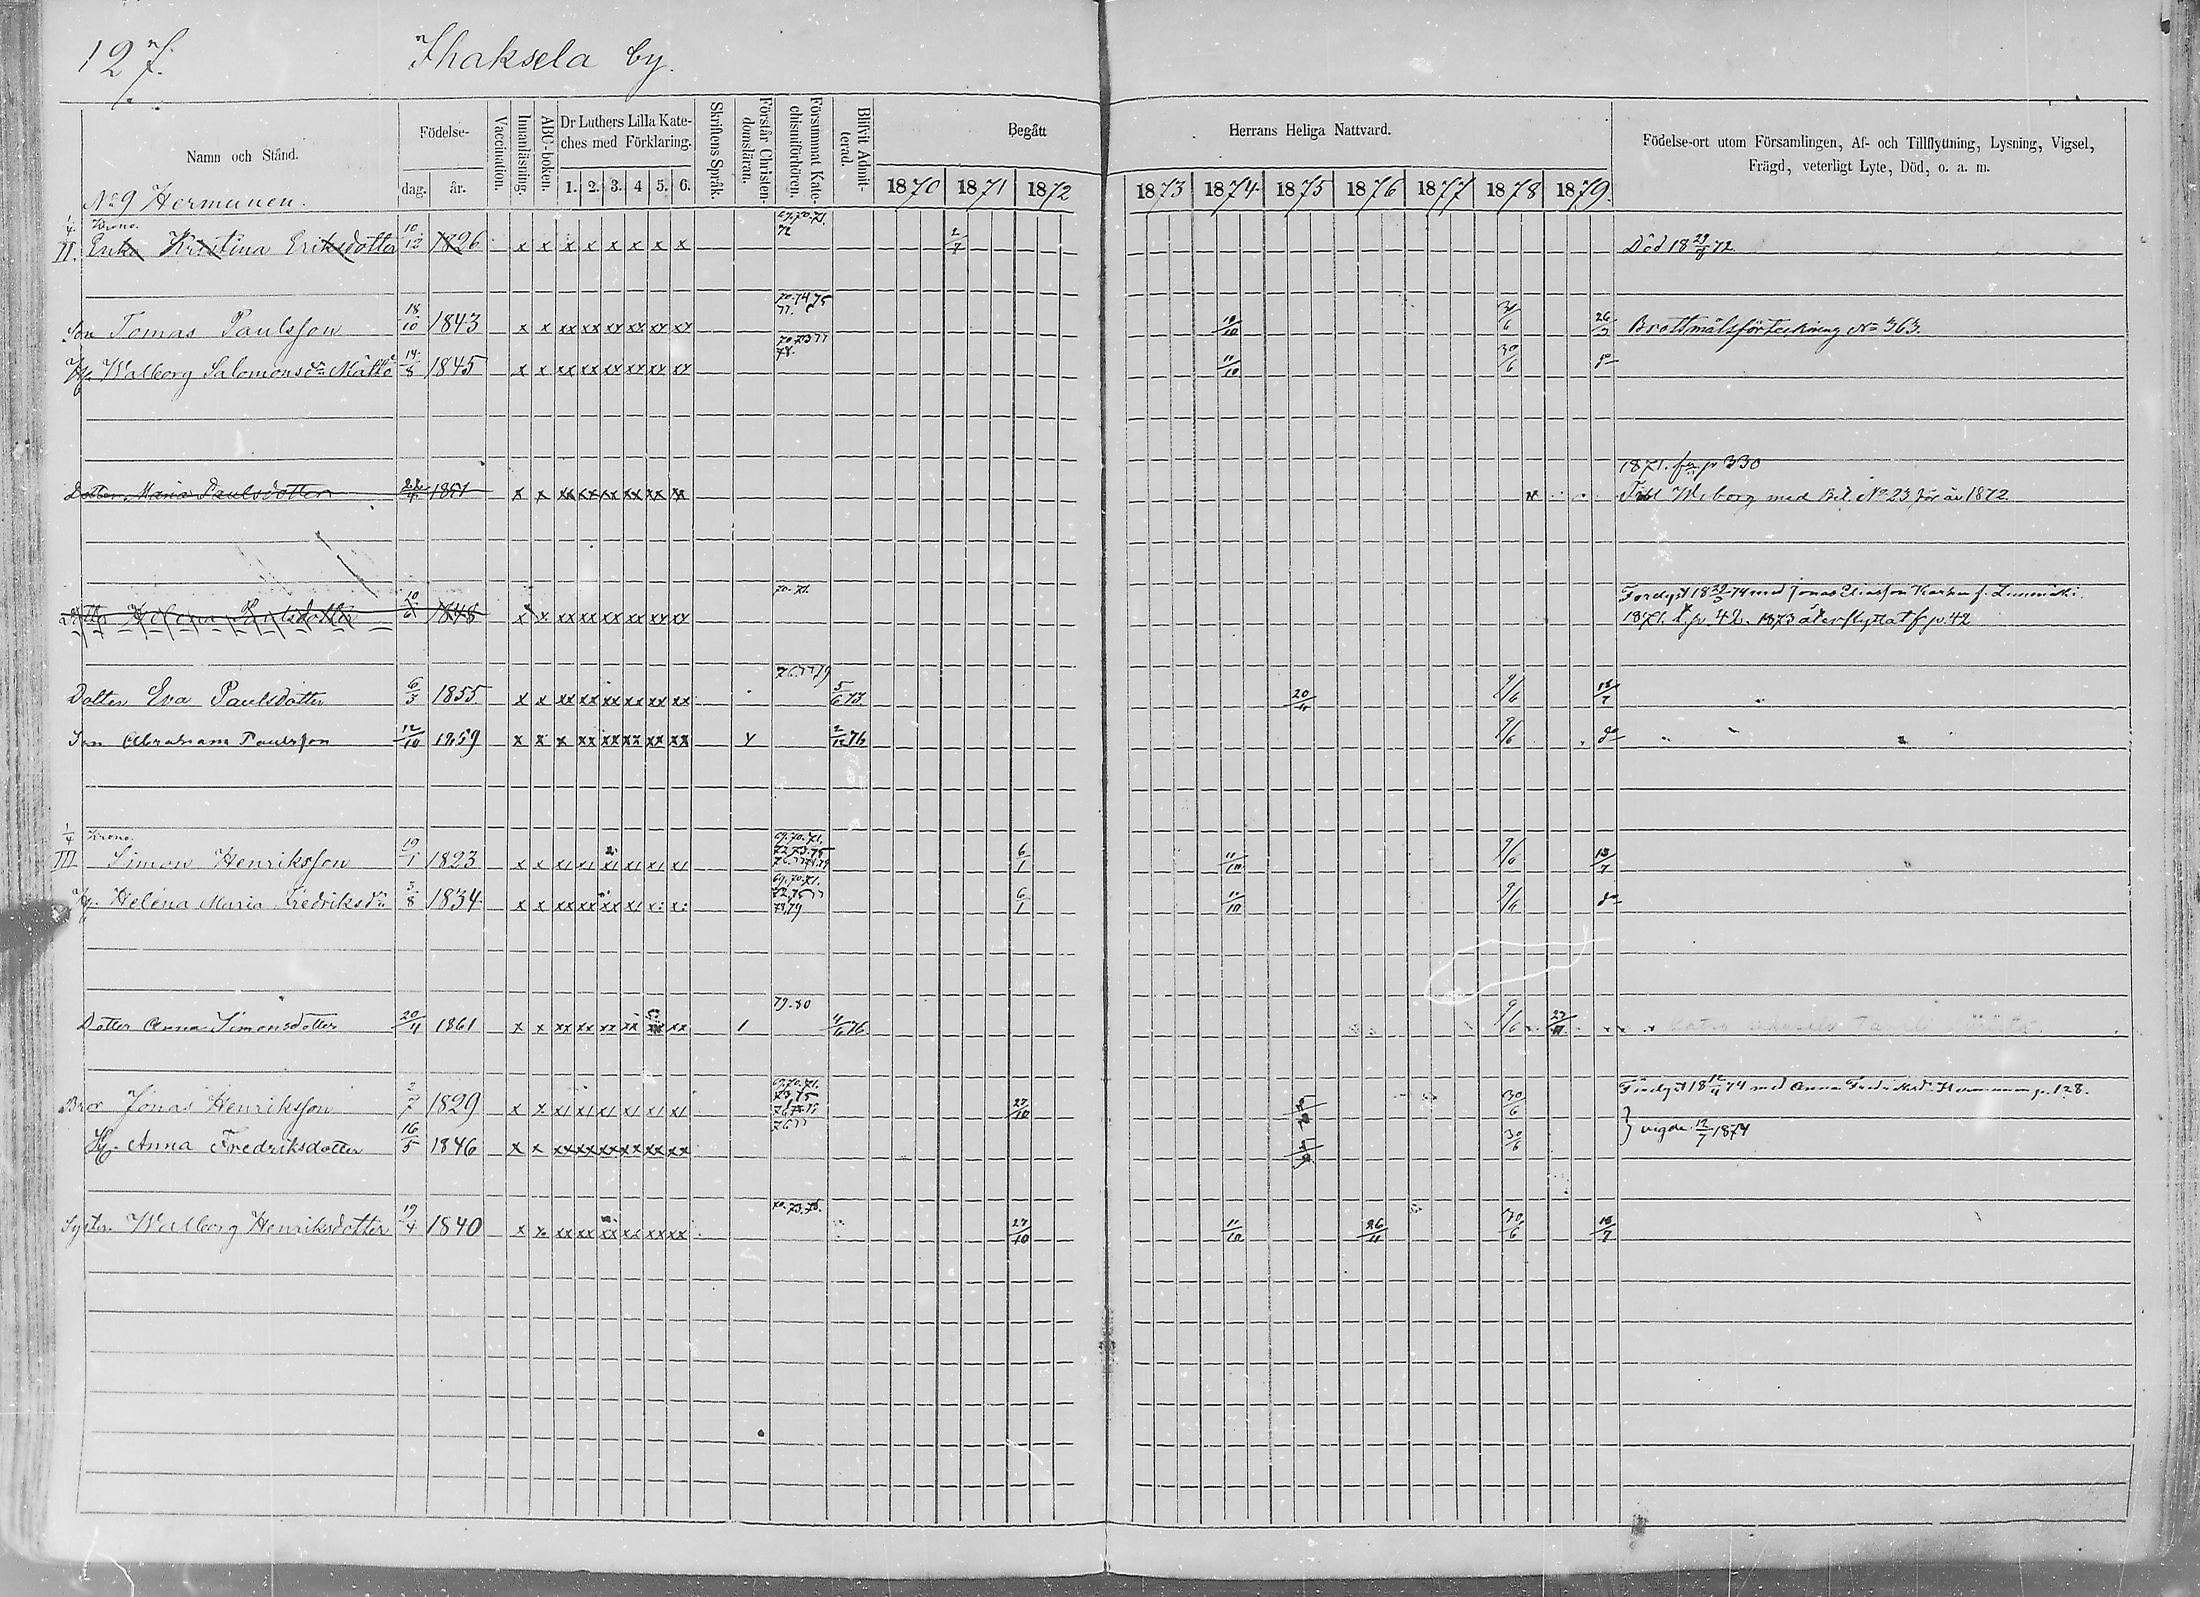 127.
Ihaksela by.
Namn och Stånd.
Födelse-
dag. år.
Vaccination.
Innanläsning.
ABC-boken.
Dr Luthers Lilla Kate-
ches med Förklaring.
1. 2. 3. 4 5. 6.
Skriftens Språk.
Förstår Christen-
domsläran.
Försummat Kate-
chismiförhören.
Blifvit Admit-
terad.
Begått Herrans Heliga Nattvard.
1870 1871 1872 1873 1874 1875 1876 1877 1878 1879.
Födelse-ort utom Församlingen, Af- och Tillflyttning, Lysning, Vigsel,
Frägd, veterligt Lyte, Död, o. a. m.
No 9 Hermunen.
1/4 Krono. 69.70.71.
II. Enka Kristina Eriksdotter 10/12 1826 x x x x x x x x 72 2/7 Död 18 29/8 72
70.74.75
Son Tomas Paulsson 18/10 1843 x x xx xx xx xx xx xx 77. 10/10 26/3 Brottmålsförteckning No 363.
Hu Walborg Salomonsdr Mältö 14/8 1845 x x xx xx xx xx xx xx 78. 11/10 30/6 do
1871. fr. p 330
Dotter Maria Paulsdotter 22/4 1851 x x xx xx xx xx xx xx Till Wiborg med Bet. No 23 för år 1872
70.71.
Förlyst 18 29/3 74 med Jonas Eliasson
1848 x x xx xx xx xx xx xx 1871. t. p. 42. 1873 återflyttat f p. 42
76 77 79
Dotter Eva Paulsdotter 6/3 1855 x x xx xx xx xx xx xx 5/6 73. 20/11 9/6 13/7
Son Abraham Paulsson 12/10 1859 x x x xx xx xx xx xx 2/12 76 9/6 do
1/4 Krono. 69.70.71.
III Simon Henriksson 19/1 1823 6/1 11/10 9/6 13/7
69.70.71.
Hu. Helena Maria Fredriksdr 3/8 1834 78,79 6/1 11/10 9/6 do
79.80
Dotter Anna Simonsdotter 20/4 1861 x x xx xx xx xx xx xx 1 4/6 76 9/6 23/11
69.70.71.
Bror Jonas Henriksson 2/7 1829 27/10 30/6 Förlyst 18 12/4 74 med Anna Fredriksdr Hermunen p. 128.
Hu. Anna Fredriksdotter 16/5 1846 x x xx xx xx xx xx xx 76 77 30/6 } vigde 12/7 1874
70.73.78.
Syster Walborg Henriksdotter 19/4 1840 x x xx xx xx xx xx xx 27/10 11/10 26/11 30/6 13/7